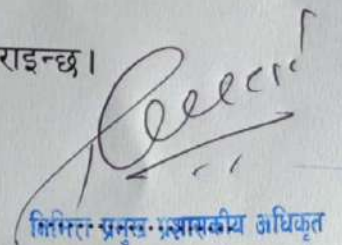 राइन्छ।
निमित्त प्रमुख प्रशासकीय अधिकृत